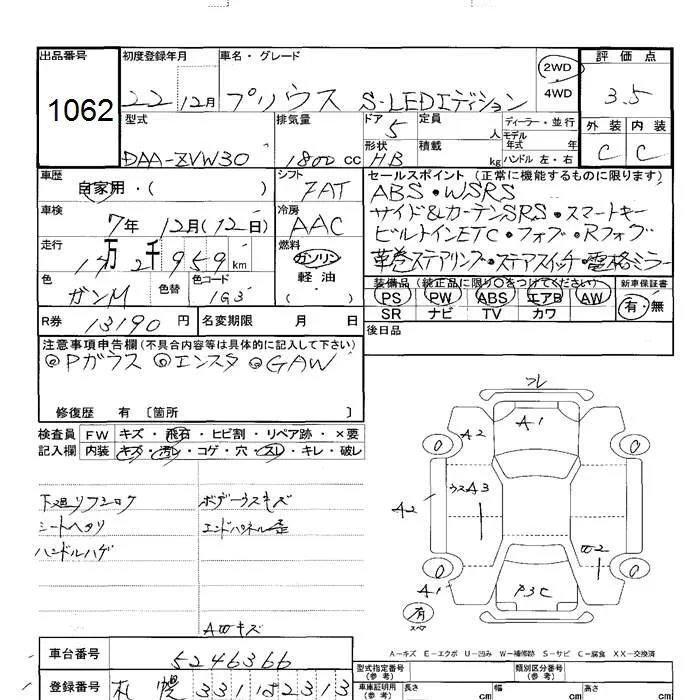 出品番号 初度登録年月 車名・グレード 2WD 4WD 評価点
1062 22 12月 プリウス S-LEDエディション 3.5
型式 排気量 ドア 5 定員 人 ディーラー・並行 外装 内装
形状 積載 kg モデル年式 年
DAA-ZVW30 1800 cc HB ハンドル 左・右 C C
車歴 自家用・( ) シフト 7AT セールスポイント (正常に機能するものに限ります)
ABS・WSRS
車検 7年 12月(12日) 冷房 AAC サイド&カーテンSRS・スマートキー
ビルトインETC・フォグ・Rフォグ
走行 万 千 959 km 燃料 ガソリン 軽油 革巻ステアリング・ステアスイッチ・電格ミラー
色 ガンM 色替 色コード 1G3 装備品 (純正品に限り○をつけてください) 新車保証書
PS PW ABS エアB AW 有・無
R券 13190 円 名変期限 月 日 SR ナビ TV カワ
注意事項申告欄(不具合内容等は具体的に記入して下さい) 後日品
◎Pガラス ◎エンスタ ◎GAW
修復歴 有 〔箇所 〕
検査員 FW キズ・飛石・ヒビ割・リペア跡・×要
記入欄 内装 キズ・汚レ・コゲ・穴・スレ・キレ・破レ
下廻リフシロク ボデーウスキズ
シートヘタリ エンドパネル歪
ハンドルハゲ
AWキズ
フレ
A1
A2
0 0
ウスA3
A2
W2
0 0
A1 P3C
有
スペア
A-キズ E-エクボ U-凹み W-補修跡 S-サビ C-腐食 XX-交換済
車台番号 5246366 型式指定番号 (参考) 類別区分番号 (参考)
登録番号 札幌 331 は 2313 車庫証明用 (参考) 長さ cm 幅 cm 高さ cm